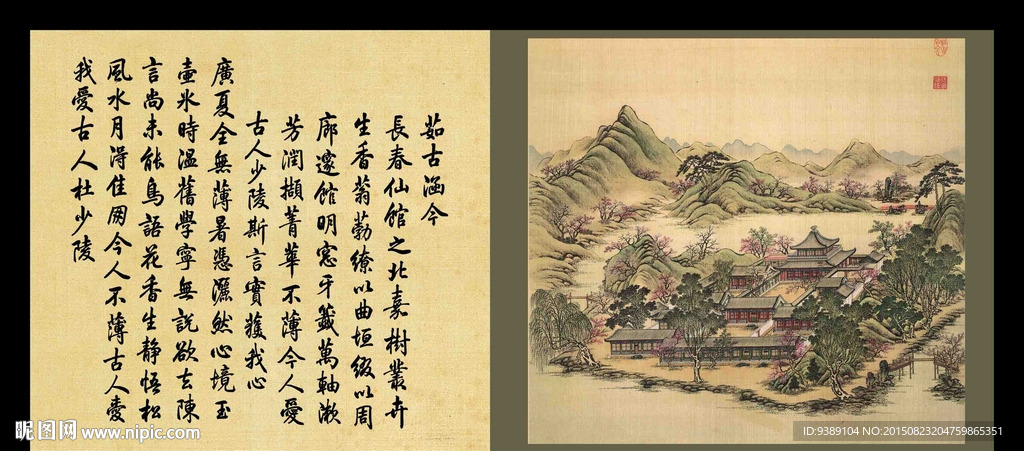 茹古涵今
長春仙館之北嘉樹叢卉
生香蓊葧繚以曲垣綴以周
廊邃館明窓牙籤萬軸漱
芳潤擷菁華不薄今人愛
古人少陵斯言實獲我心
廣夏全無薄暑憑灑然心境玉
壺氷時溫舊學寧無說欲去陳
言尚未能鳥語花香生靜悟松
風水月淂佳朋今人不薄古人愛
我愛古人杜少陵
昵图网 www.nipic.com
ID:9389104 NO:20150823204759865351